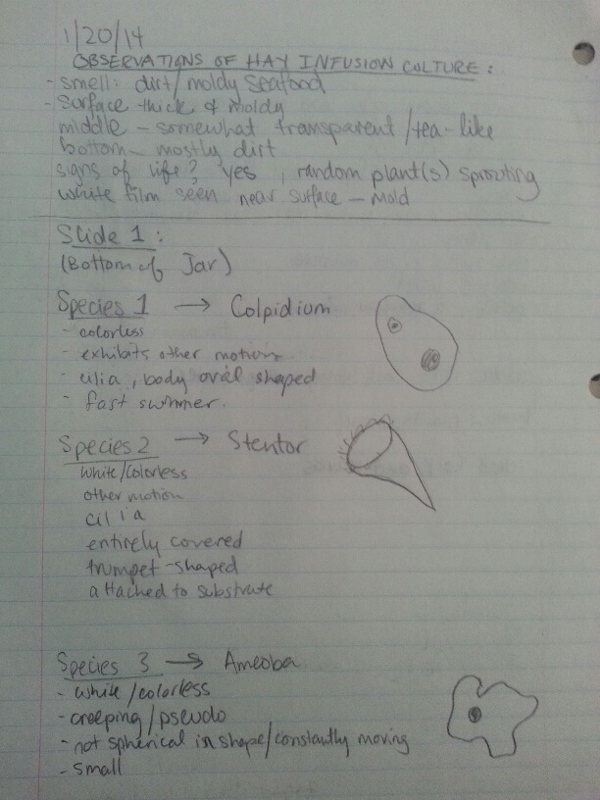 1/20/14
OBSERVATIONS OF HAY INFUSION CULTURE:
- smell: dirt/moldy seafood
- surface thick & moldy
middle - somewhat transparent/tea-like
bottom - mostly dirt
signs of life? yes, random plant(s) sprouting
white film seen near surface - mold
Slide 1:
(Bottom of Jar)
Species 1 → Colpidium
- colorless
- exhibits other motion
- cilia, body oval shaped
- fast swimmer.
Species 2 → Stentor
white/colorless
other motion
cilia
entirely covered
trumpet-shaped
attached to substrate
Species 3 → Ameoba
- white/colorless
- creeping/pseudo
- not spherical in shape/constantly moving
- small